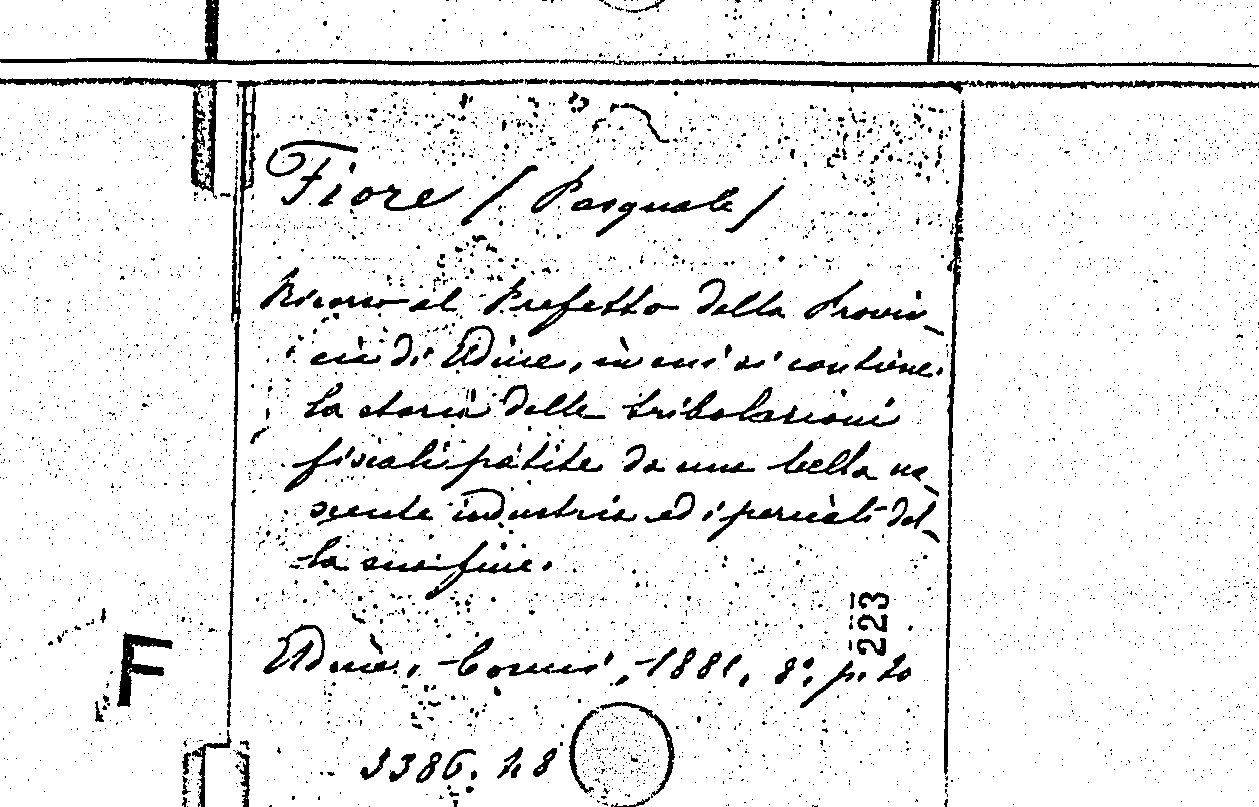 Fiore (Pasquale)
Ricorso al Prefetto della Provin-
cia di Udine, in cui si contiene
la storia delle tribolazioni
fiscali patite da una bella na-
scente industria ed i pericoli del-
la sua fine.
223
F
Udine, Comini, 1881, 8°, p. 20
3386. 28